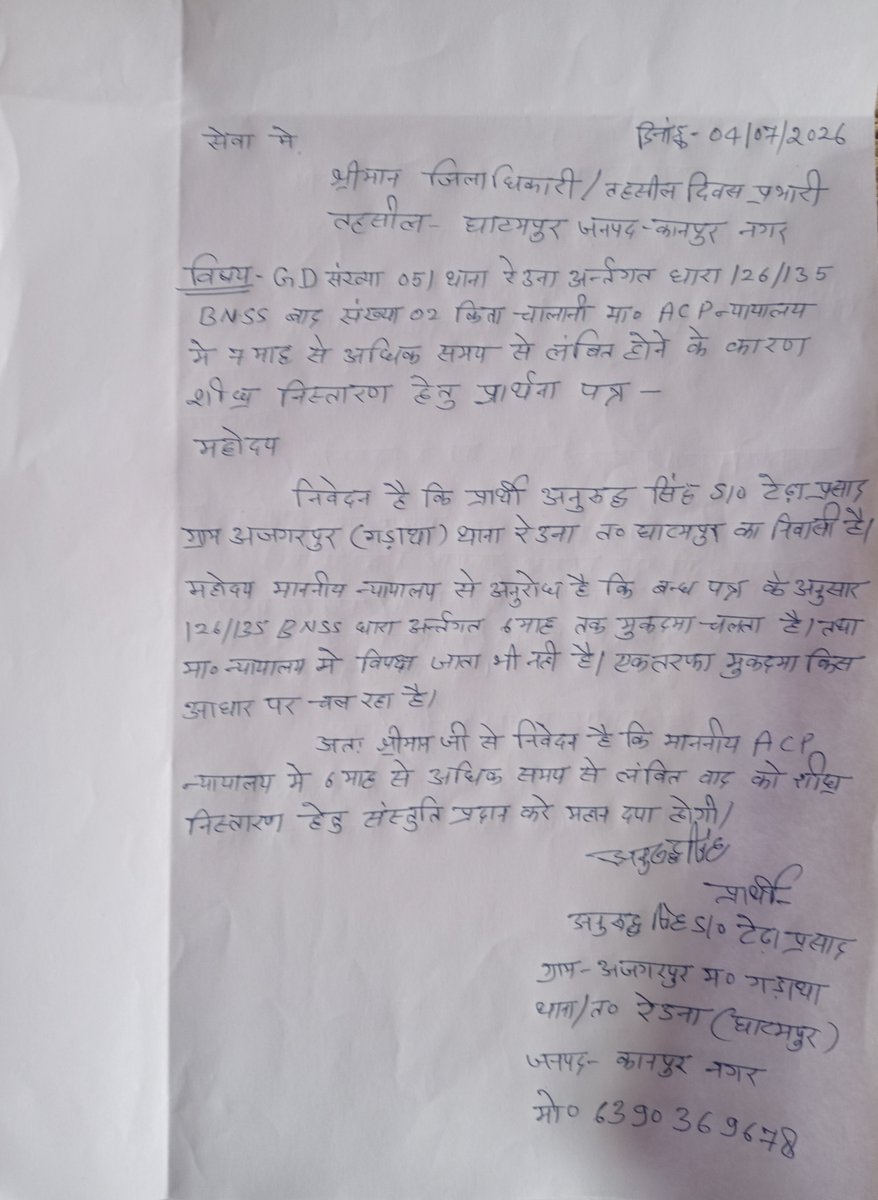 सेवा मे,
दिनांक- 04/07/2026
श्रीमान जिलाधिकारी/तहसील दिवस प्रभारी
तहसील- घाटमपुर जनपद-कानपुर नगर
विषय- GD संख्या 051 थाना रेउना अर्न्तगत धारा 126/135
BNSS बाद संख्या 02 किता चालानी मा० ACP न्यायालय
मे 7 माह से अधिक समय से लंबित होने के कारण
शीघ्र निस्तारण हेतु प्रार्थना पत्र -
महोदय
निवेदन है कि प्रार्थी अनुरुद्ध सिंह S/O टेढ़ा प्रसाद
ग्राम अजगरपुर (गड़ाथा) थाना रेउना त० घाटमपुर का निवासी है।
महोदय माननीय न्यायालय से अनुरोध है कि बन्ध पत्र के अनुसार
126/135 BNSS धारा अर्न्तगत 6 माह तक मुकदमा चलता है। तथा
मा० न्यायालय मे विपक्ष जाता भी नही है। एकतरफा मुकदमा किस
आधार पर चल रहा है।
अतः श्रीमान जी से निवेदन है कि माननीय ACP
न्यायालय मे 6 माह से अधिक समय से लंवित वाद को शीघ्र
निस्तारण हेतु संस्तुति प्रदान करे महान दया होगी।
अनुरुद्ध सिंह
प्रार्थी-
अनुरुद्ध सिंह S/O टेढ़ा प्रसाद
ग्राम- अजगरपुर म० गड़ाथा
थाना/त० रेउना (घाटमपुर)
जनपद- कानपुर नगर
मो० 6390369678